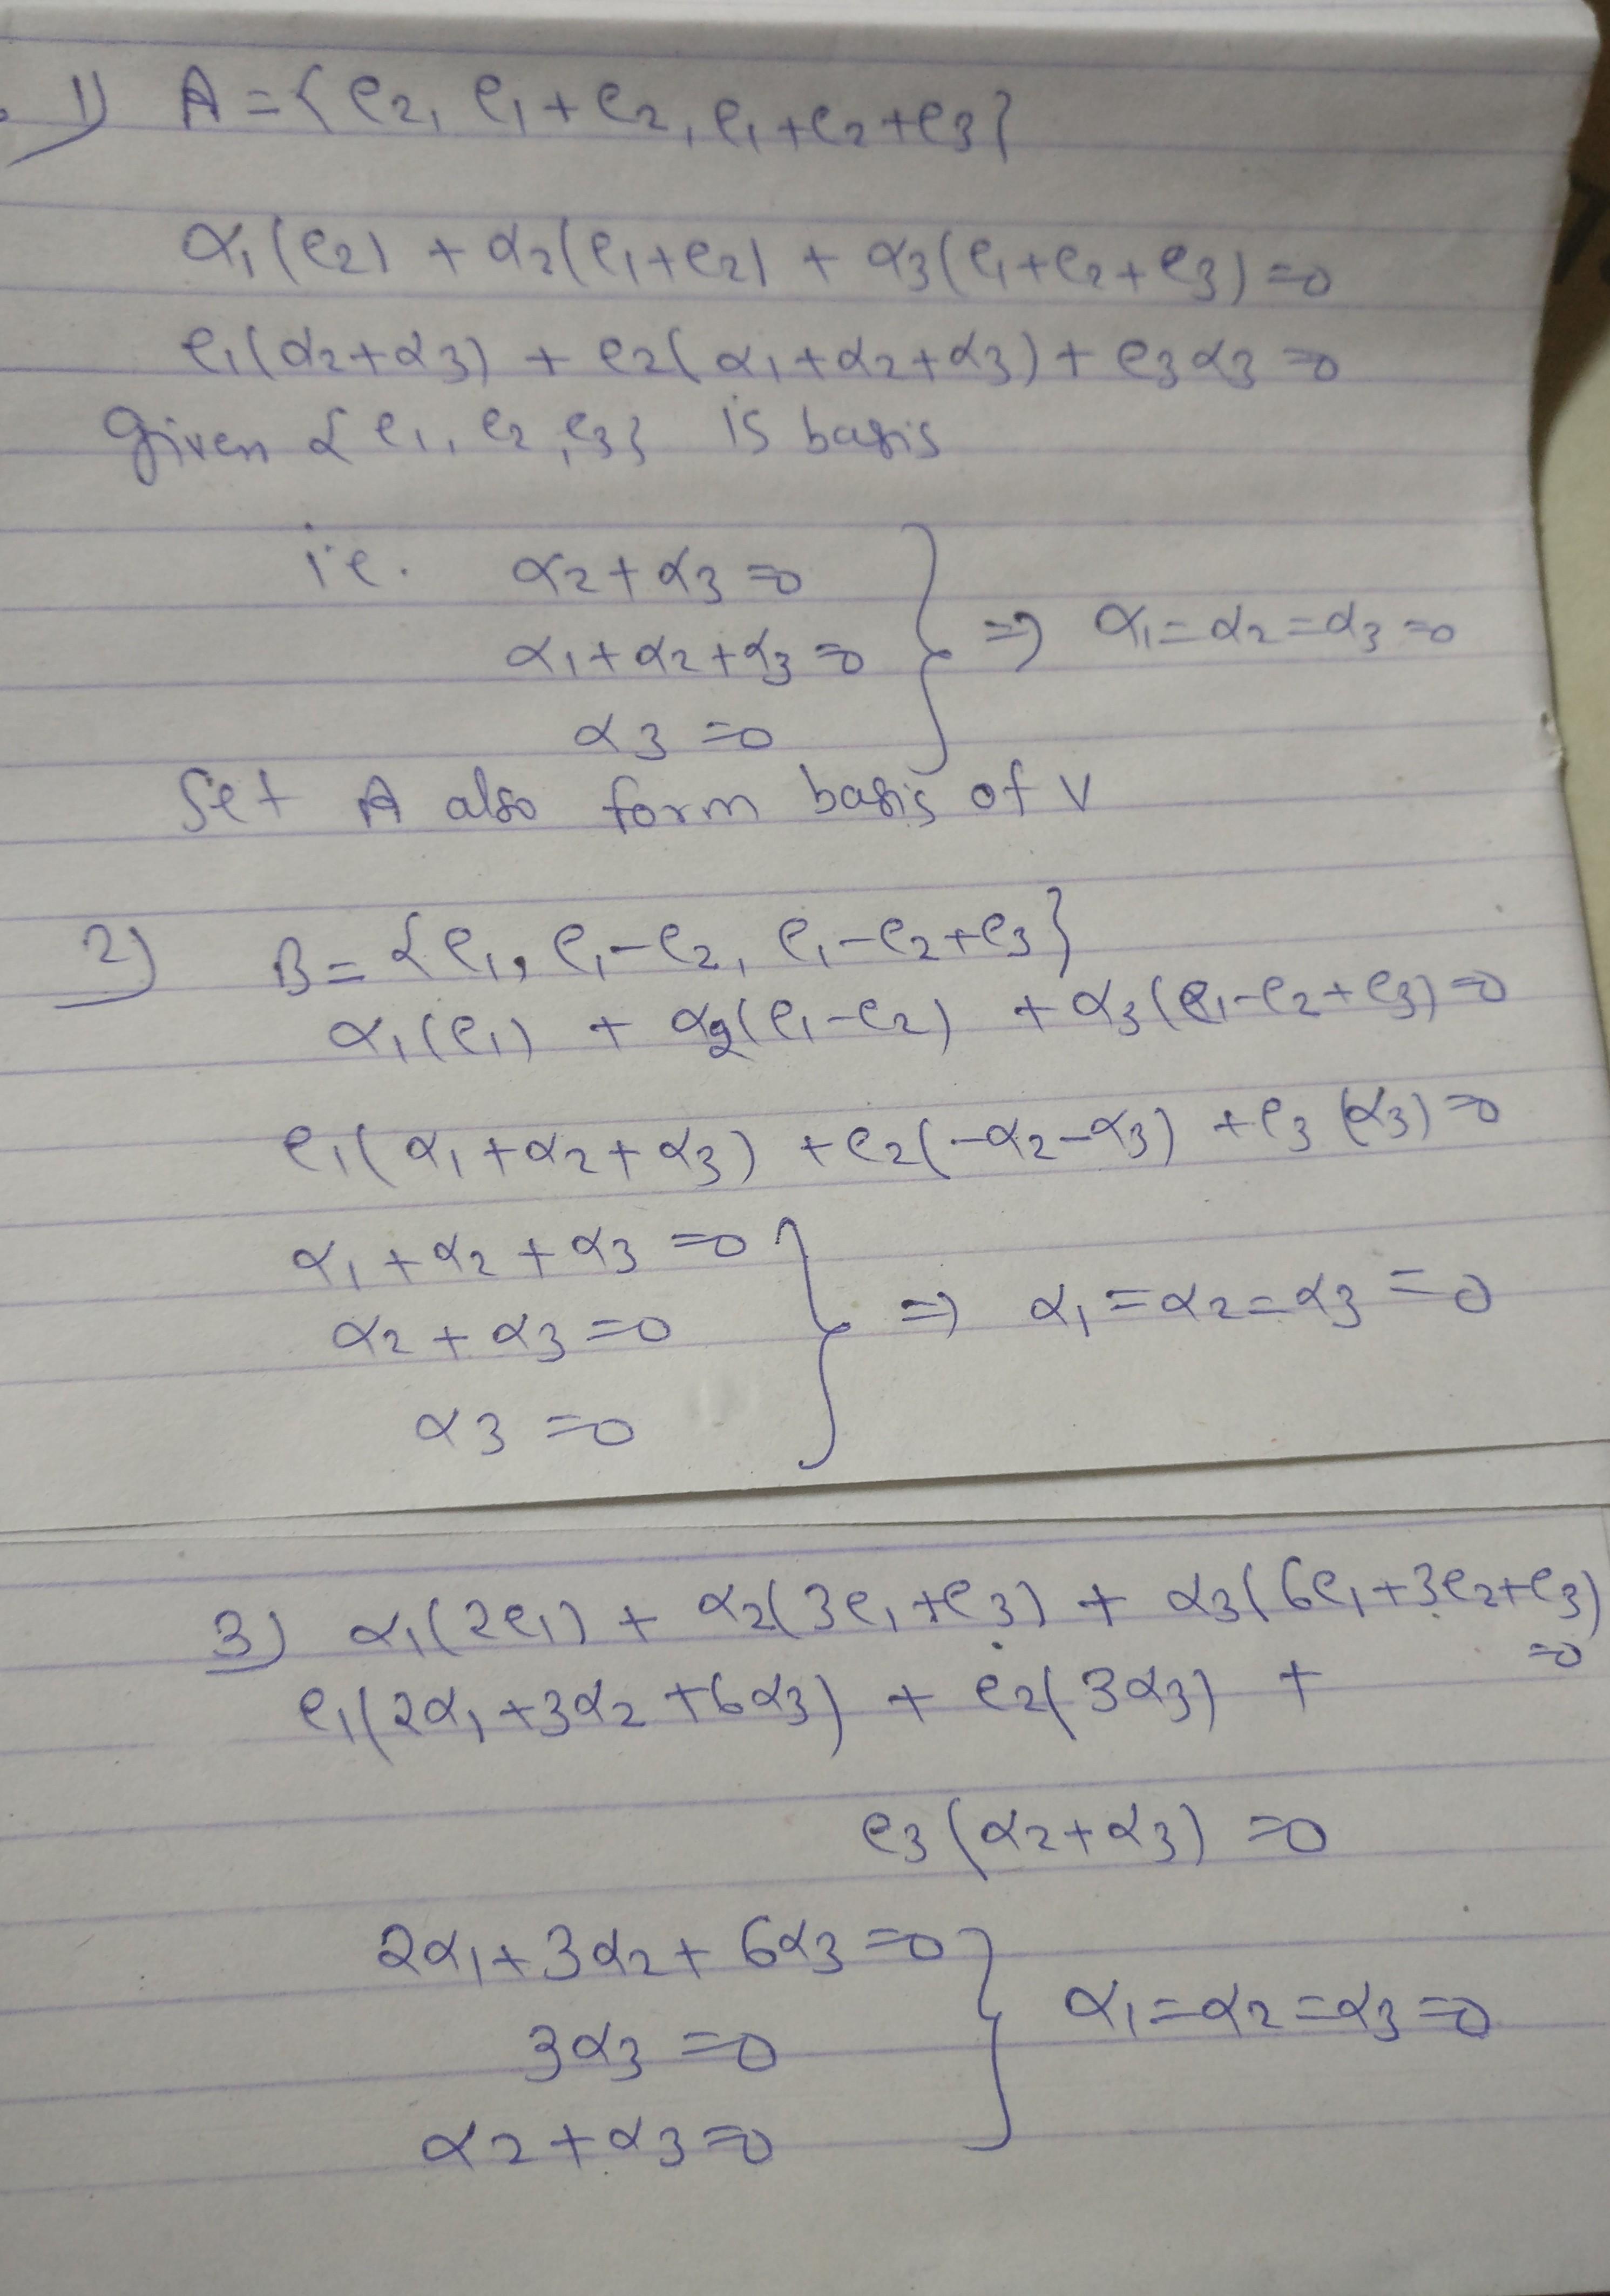 1) A = {e₂, e₁+e₂, e₁+e₂+e₃}
α₁(e₂) + α₂(e₁+e₂) + α₃(e₁+e₂+e₃)=0
e₁(α₂+α₃) + e₂(α₁+α₂+α₃) + e₃α₃=0
Given {e₁, e₂, e₃} is basis
i.e. α₂+α₃=0
α₁+α₂+α₃=0 ⇒ α₁=α₂=α₃=0
α₃=0
Set A also form basis of V
2) B = {e₁, e₁-e₂, e₁-e₂+e₃}
α₁(e₁) + α₂(e₁-e₂) + α₃(e₁-e₂+e₃)=0
e₁(α₁+α₂+α₃) +e₂(-α₂-α₃) +e₃(α₃)=0
α₁+α₂+α₃=0
α₂+α₃=0 ⇒ α₁=α₂=α₃=0
α₃=0
3) α₁(2e₁) + α₂(3e₁+e₃) + α₃(6e₁+3e₂+e₃)
=0
e₁(2α₁+3α₂+6α₃) + e₂(3α₃) +
e₃(α₂+α₃)=0
2α₁+3α₂+6α₃=0
3α₃=0 α₁=α₂=α₃=0
α₂+α₃=0